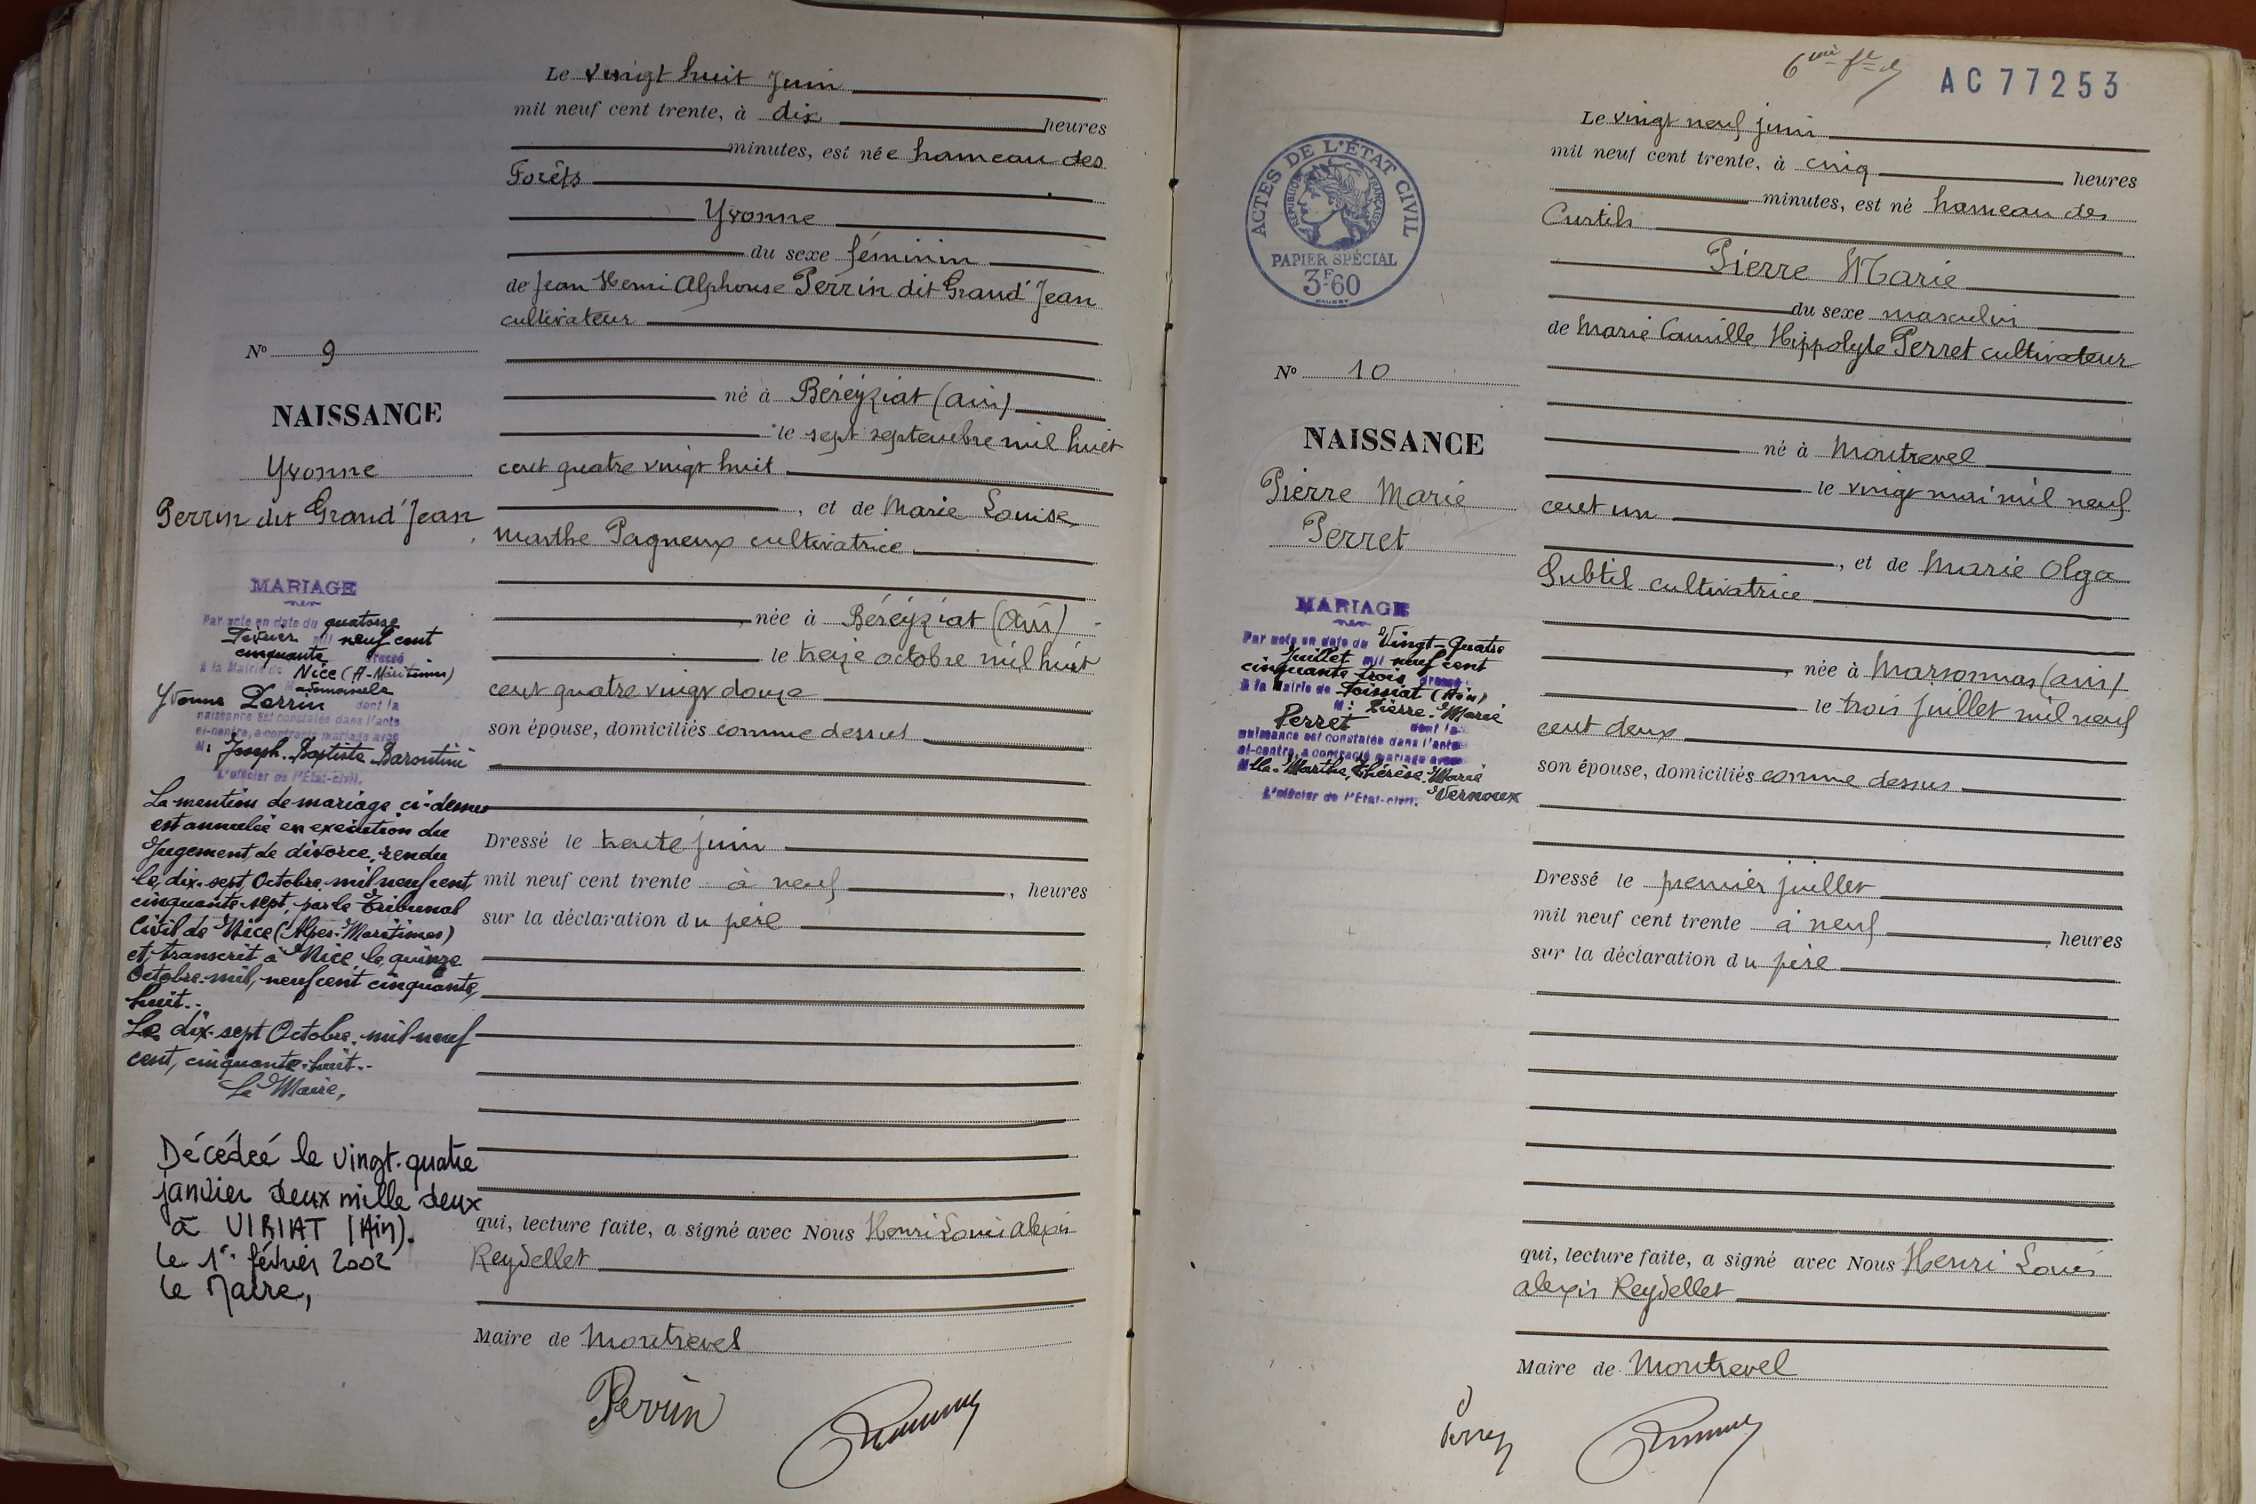 Le vingt huit Juin
mil neuf cent trente, à dix heures
minutes, est née hameau des
Forêts
Yvonne
du sexe féminin
de Jean Henri Alphonse Perrin dit Grand'Jean
cultivateur
né à Béréyziat (Ain)
le sept septembre mil huit
cent quatre vingt huit
, et de Marie Louise
Marthe Pagneux cultivatrice
née à Béréyziat (Ain)
le treize octobre mil huit
cent quatre vingt douze
son épouse, domiciliés comme dessus
Dressé le trente juin
mil neuf cent trente à neuf , heures
sur la déclaration du père
qui, lecture faite, a signé avec Nous Henri Louis Alexis
Reydellet
Maire de Montrevel
Perrin
No 9
NAISSANCE
Yvonne
Perrin dit Grand'Jean
MARIAGE
Par acte en date du quatorze
Février mil neuf cent
cinquante dressé
à la Mairie de Nice (A-Maritimes)
Mademoiselle
Yvonne Perrin dont la
naissance est constatée dans l'acte
ci-contre, a contracté mariage avec
M: Joseph. Baptiste Barontini
L'officier de l'État-civil.
La mention de mariage ci-dessus
est annulée en exécution du
Jugement de divorce, rendu
le dix-sept Octobre mil neuf cent
cinquante-sept, par le Tribunal
Civil de Nice (Alpes-Maritimes)
et transcrit à Nice le quinze
Octobre mil, neuf cent cinquante
huit..
Le dix-sept Octobre mil neuf
cent, cinquante-huit..
Le Maire,
Décédée le vingt-quatre
janvier deux mille deux
à VIRIAT (Ain).
le 1er février 2002
le Maire,
AC 77253
ACTES DE L'ÉTAT CIVIL
RÉPUBLIQUE FRANÇAISE
PAPIER SPÉCIAL
3F60
Le vingt neuf juin
mil neuf cent trente, à cinq heures
minutes, est né hameau des
Curtils
Pierre Marie
du sexe masculin
de Marie Camille Hippolyte Perret cultivateur
né à Montrevel
le vingt mai mil neuf
cent un
, et de Marie Olga
Subtil cultivatrice
née à Marsonnas (Ain)
le trois Juillet mil neuf
cent deux
son épouse, domiciliés comme dessus
Dressé le premier juillet
mil neuf cent trente à neuf , heures
sur la déclaration du père
qui, lecture faite, a signé avec Nous Henri Louis
Alexis Reydellet
Maire de Montrevel
No 10
NAISSANCE
Pierre Marie
Perret
MARIAGE
Par acte en date du Vingt-Quatre
Juillet mil neuf cent
cinquante trois dressé
à la Mairie de Foissiat (Ain)
M: Pierre-Marie
Perret dont la
naissance est constatée dans l'acte
ci-contre, a contracté mariage avec
Mlle Marthe, Thérèse, Marie
Vernoux
L'officier de l'État-civil.